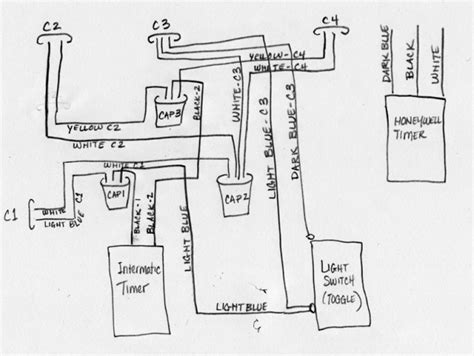 C2
C3
C4
YELLOW-C4
WHITE-C4
DARK BLUE
BLACK
WHITE
HONEYWELL
TIMER
CAP3
BLACK-2
WHITE-C3
YELLOW C2
WHITE C2
LIGHT BLUE-C3
DARK BLUE-C3
WHITE C1
CAP1
CAP2
C1
WHITE C1
LIGHT BLUE
BLACK-1
BLACK-2
LIGHT BLUE
Intermatic
Timer
LIGHT
SWITCH
(TOGGLE)
LIGHT BLUE